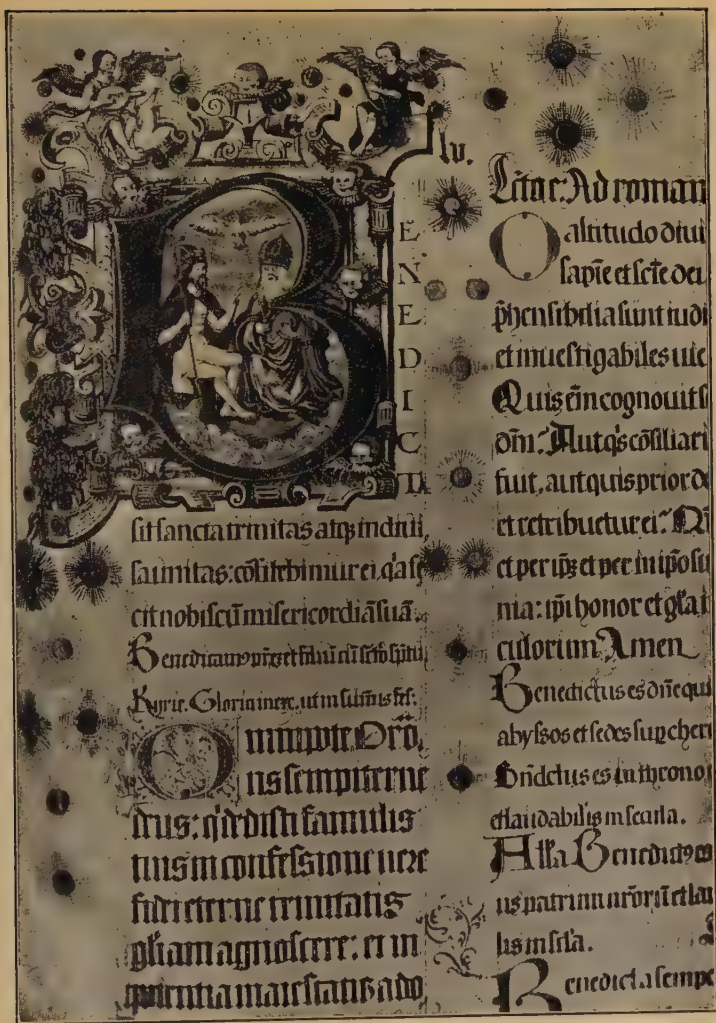 BENEDICTA
sit sancta trinitas atq; indiui
sa unitas: cōfitebimur ei. q̇a fe
cit nobiscū misericordiā suā.
Benedicamꝰ prēz et filiū cū scto spūi
Kyrie. Gloria in exc. ut in
Omnipotē Orō.
ns sempiterne
deus: q̇ dedisti famulis
tuis in confessione uere
fidei eterne trinitatis
gliam agnoscere: et in
potentia maiestatis ado
lv.
Lctio: Ad roman
O altitudo diui
sapīe et scīe dei
p̄hensibilia sunt iudi
et inuestigabiles uie
Quis em̄ cognouit s
dn̄i. Aut q̇s cōsiliari
fuit, aut quis prior de
et retribuetur ei. Qm̄
et per ipz et per in ipo su
nia: ipi honor et gl̄a i
culorum Amen
Benedictus es dn̄e qui
abyssos et sedes sup cher
Bndctus es in throno
et laudabilis in secula.
Alla Benedictꝰ es
us patrum nr̄orū et lau
lis in scl̄a.
Benedicta sempe